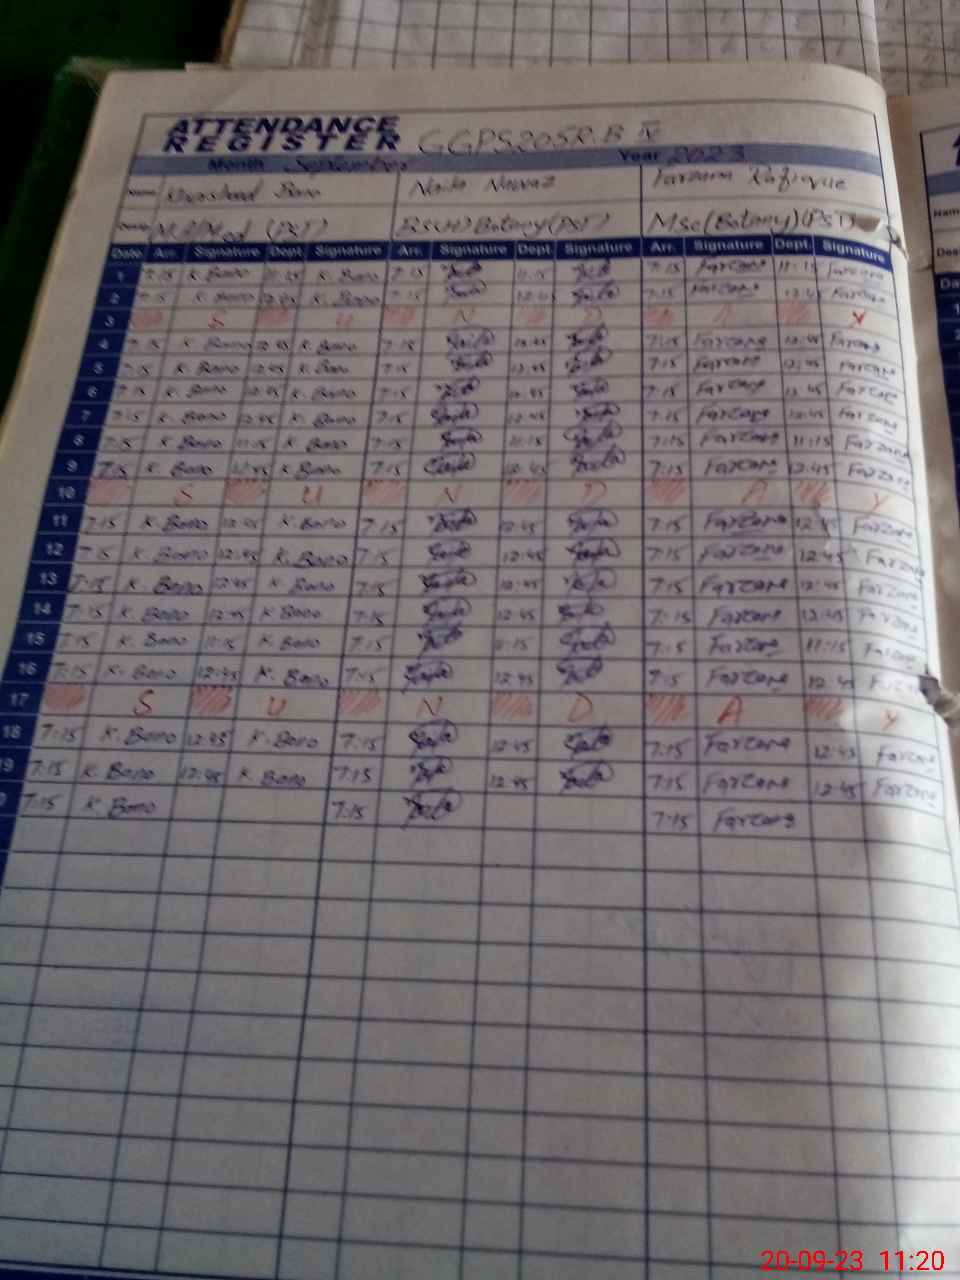 ATTENDANCE
REGISTER GGPS 205 R.B IV
Month September Year 2023
Name Khurshaad Bano Naila Nawaz Farzana Rafique
M.A/M.ed (PST) BS(H) Botany (PST) MSc (Botany) (PST)
Date Arr. Signature Dept. Signature Arr. Signature Dept. Signature Arr. Signature Dept. Signature
1 7:15 K. Bano 11:15 K. Bano 7:15 11:15 7:15 Farzana 11:15 Farzana
2 7:15 K. Bano 12:45 K. Bano 7:15 12:45 7:15 Farzana 12:45 Farzana
3 S U N D A Y
4 7:15 K. Bano 12:45 K. Bano 7:15 12:45 7:15 Farzana 12:45 Farzana
5 7:15 K. Bano 12:45 K. Bano 7:15 12:45 7:15 Farzana 12:45 Farzana
6 7:15 K. Bano 12:45 K. Bano 7:15 12:45 7:15 Farzana 12:45 Farzana
7 7:15 K. Bano 12:45 K. Bano 7:15 12:45 7:15 Farzana 12:45 Farzana
8 7:15 K. Bano 11:15 K. Bano 7:15 11:15 7:15 Farzana 11:15 Farzana
9 7:15 K. Bano 12:45 K. Bano 7:15 12:45 7:15 Farzana 12:45 Farzana
10 S U N D A Y
11 7:15 K. Bano 12:45 K. Bano 7:15 12:45 7:15 Farzana 12:45 Farzana
12 7:15 K. Bano 12:45 K. Bano 7:15 12:45 7:15 Farzana 12:45 Farzana
13 7:15 K. Bano 12:45 K. Bano 7:15 12:45 7:15 Farzana 12:45 Farzana
14 7:15 K. Bano 12:45 K. Bano 7:15 12:45 7:15 Farzana 12:45 Farzana
15 7:15 K. Bano 11:15 K. Bano 7:15 11:15 7:15 Farzana 11:15 Farzana
16 7:15 K. Bano 12:45 K. Bano 7:15 12:45 7:15 Farzana 12:45 Farzana
17 S U N D A Y
18 7:15 K. Bano 12:45 K. Bano 7:15 12:45 7:15 Farzana 12:45 Farzana
19 7:15 K. Bano 12:45 K. Bano 7:15 12:45 7:15 Farzana 12:45 Farzana
7:15 K. Bano 7:15 7:15 Farzana
20-09-23 11:20